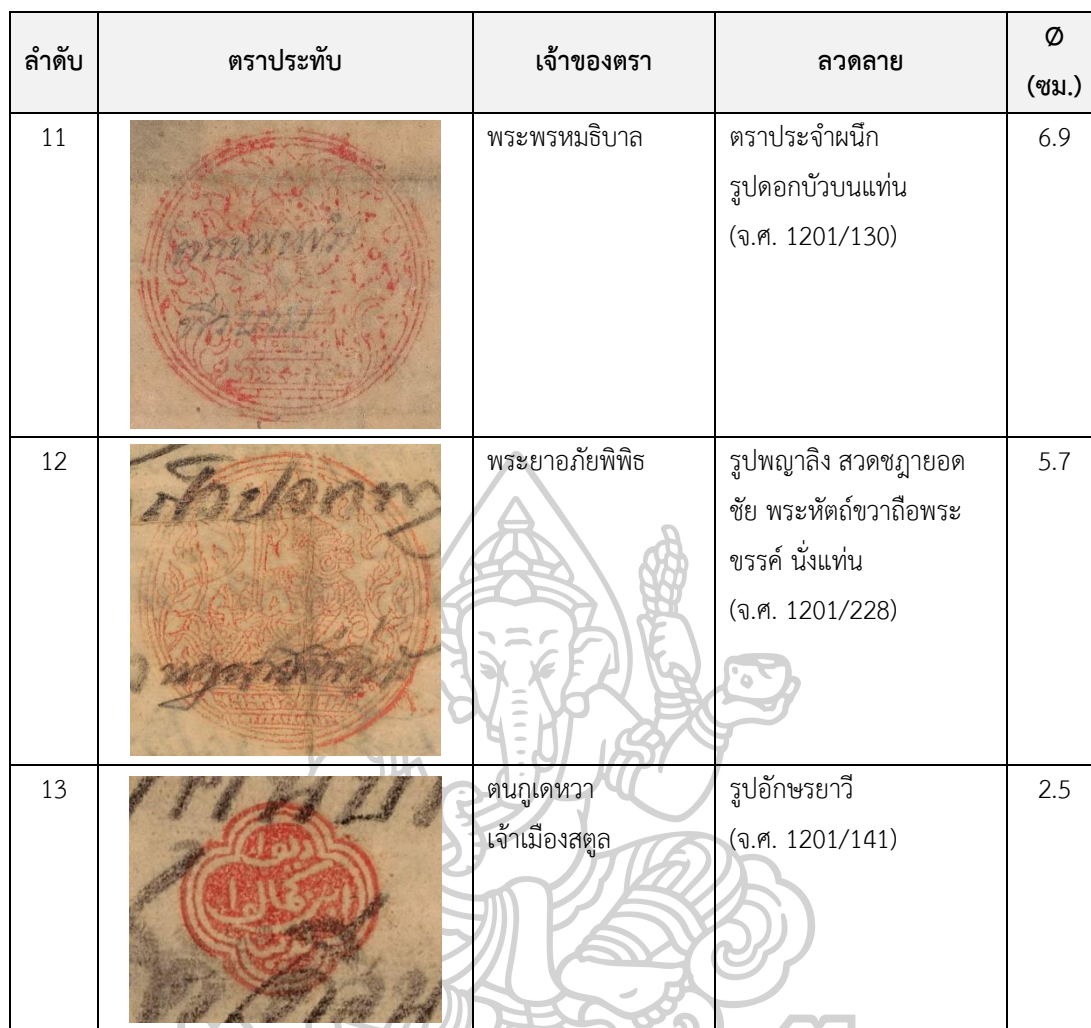 ลำดับ ตราประทับ เจ้าของตรา ลวดลาย Ø
(ซม.)
11 พระพรหมธิบาล ตราประจำผนึก 6.9
รูปดอกบัวบนแท่น
(จ.ศ. 1201/130)
12 พระยาอภัยพิพิธ รูปพญาลิง สวดชฎายอด 5.7
ชัย พระหัตถ์ขวาถือพระ
ขรรค์ นั่งแท่น
(จ.ศ. 1201/228)
13 ตนกูเดหวา รูปอักษรยาวี 2.5
เจ้าเมืองสตูล (จ.ศ. 1201/141)